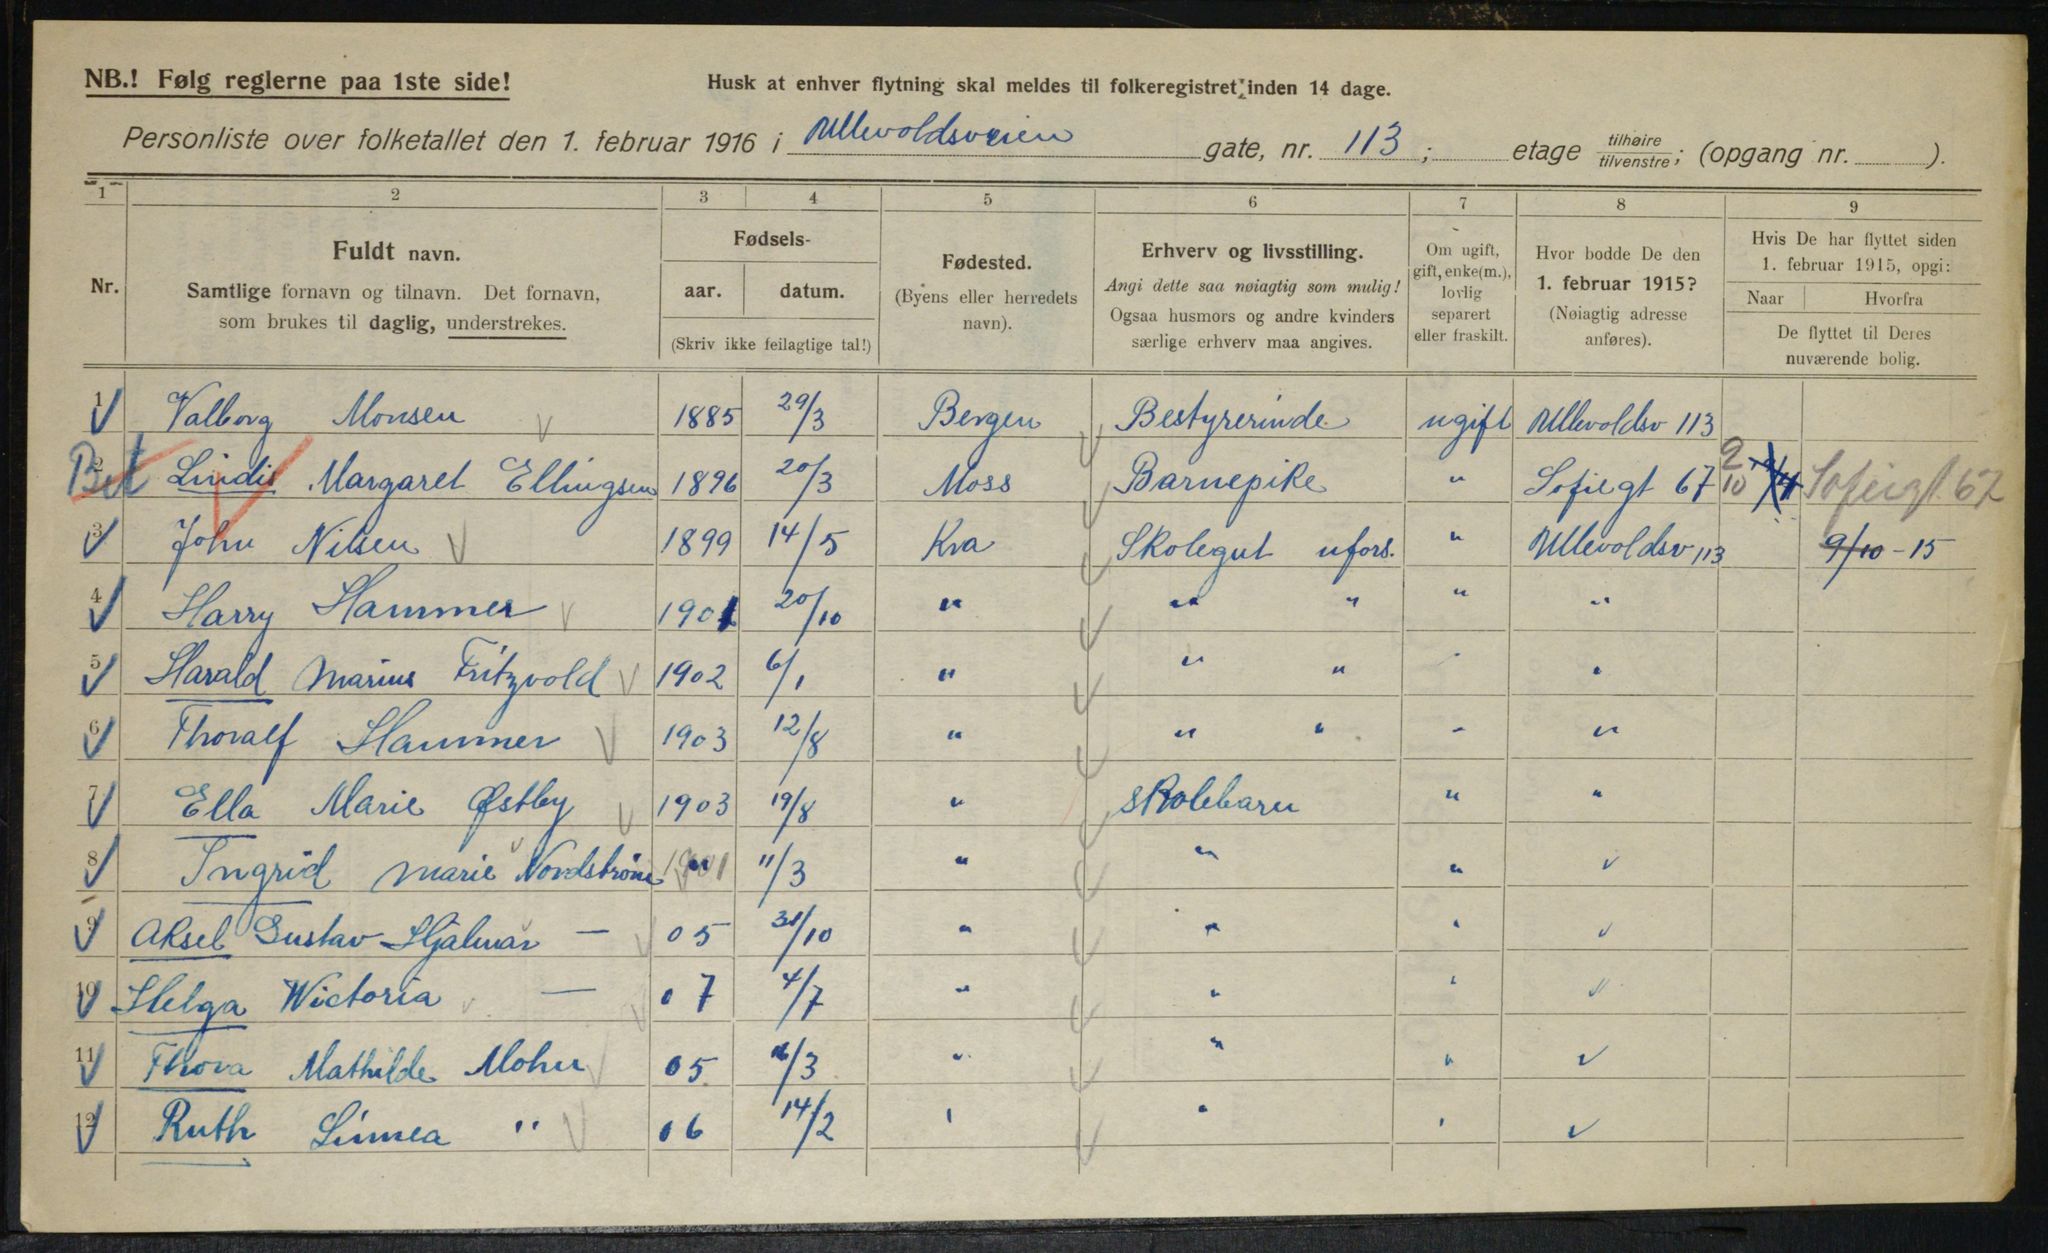 NB.! Følg reglerne paa 1ste side!
Husk at enhver flytning skal meldes til folkeregistret inden 14 dage.
Personliste over folketallet den 1. februar 1916 i Ullevoldsveien gate, nr. 113; etage tilhøire tilvenstre; (opgang nr. ).
1 2 3 4 5 6 7 8 9
Nr.
Fuldt navn.
Samtlige fornavn og tilnavn. Det fornavn,
som brukes til daglig, understrekes.
Fødsels-
aar. datum.
(Skriv ikke feilagtige tal!)
Fødested.
(Byens eller herredets
navn).
Erhverv og livsstilling.
Angi dette saa nøiagtig som mulig!
Ogsaa husmors og andre kvinders
særlige erhverv maa angives.
Om ugift,
gift, enke(m.),
lovlig
separert
eller fraskilt.
Hvor bodde De den
1. februar 1915?
(Nøiagtig adresse
anføres).
Hvis De har flyttet siden
1. februar 1915, opgi:
Naar Hvorfra
De flyttet til Deres
nuværende bolig.
1 Valborg Monsen 1885 29/3 Bergen Bestyrerinde ugift Ullevoldsv 113
Bet 2 Lindis Margaret Ellingsen 1896 20/3 Moss Barnepike " Sofiegt 67 2/10 Sofiegt. 67
3 John Nilsen 1899 14/5 Kra Skolegut ufors. " Ullevoldsv 113 9/10-15
4 Harry Hammer 1901 20/10 " " " " "
5 Harald Marius Fritzvold 1902 6/1 " " " " "
6 Thoralf Hammer 1903 12/8 " " " " "
7 Ella Marie Østby 1903 19/8 " Skolebarn " "
8 Ingrid Marie Nordstrøm 1901 11/3 " " " "
9 Aksel Gustav Hjalmar — 05 31/10 " " " "
10 Helga Wictoria — 07 4/7 " " " "
11 Thora Mathilde Mohn 05 /3 " " " "
12 Ruth Linnea " 06 14/2 " " " "